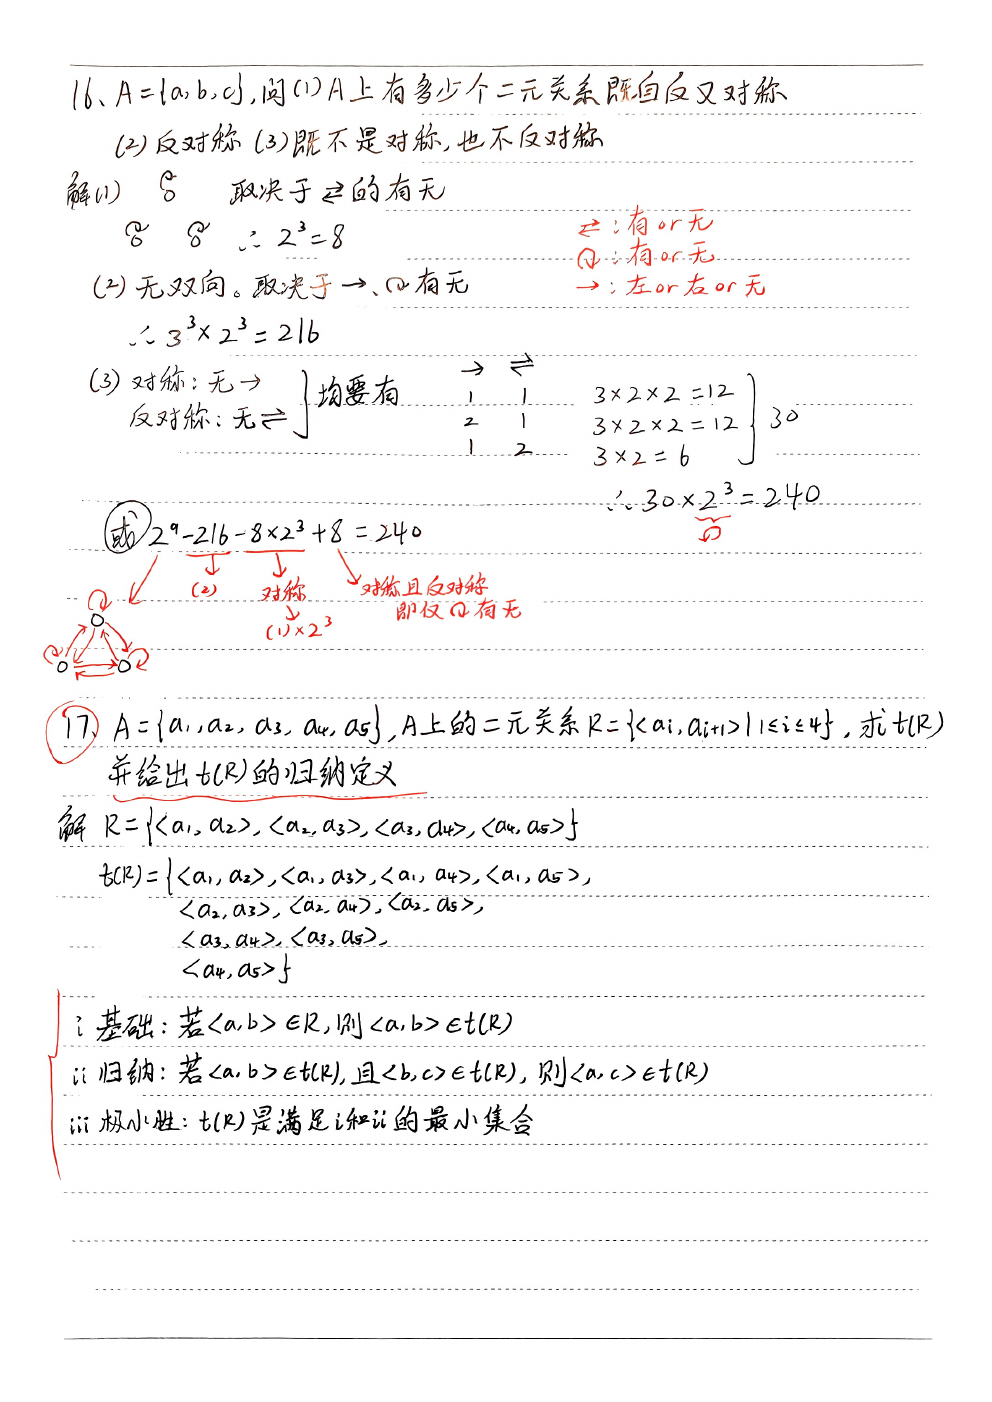 16、A={a,b,c},问(1)A上有多少个二元关系既自反又对称
(2)反对称 (3)既不是对称,也不反对称
解(1) 取决于⇄的有无
∴ 2³=8
⇄:有or无
↷:有or无
→:左or右or无
(2)无双向。取决于→、↷有无
∴ 3³×2³=216
(3)对称:无→
反对称:无⇌
均要有
→ ⇌
1 1 3×2×2=12
2 1 3×2×2=12
1 2 3×2=6
30
∴30×2³=240
或 2⁹-216-8×2³+8=240
(2) 对称 对称且反对称
即仅↷有无
(1)×2³
17、A={a₁,a₂,a₃,a₄,a₅},A上的二元关系R={<aᵢ,aᵢ₊₁>|1≤i≤4},求t(R)
并给出t(R)的归纳定义
解 R={<a₁,a₂>,<a₂,a₃>,<a₃,a₄>,<a₄,a₅>}
t(R)={<a₁,a₂>,<a₁,a₃>,<a₁,a₄>,<a₁,a₅>,
<a₂,a₃>,<a₂,a₄>,<a₂,a₅>,
<a₃,a₄>,<a₃,a₅>,
<a₄,a₅>}
i 基础:若<a,b>∈R,则<a,b>∈t(R)
ii 归纳:若<a,b>∈t(R),且<b,c>∈t(R),则<a,c>∈t(R)
iii 极小性:t(R)是满足i和ii的最小集合